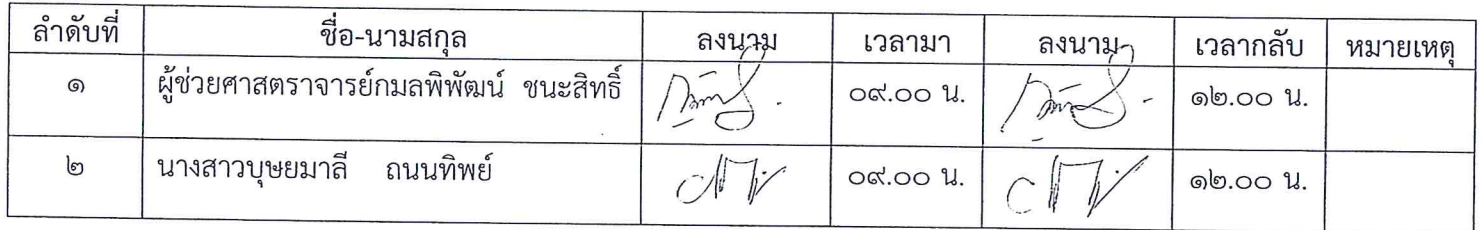 ลำดับที่ ชื่อ-นามสกุล ลงนาม เวลามา ลงนาม เวลากลับ หมายเหตุ
๑ ผู้ช่วยศาสตราจารย์กมลพิพัฒน์ ชนะสิทธิ์ ๐๙.๐๐ น. ๑๒.๐๐ น.
๒ นางสาวบุษยมาลี ถนนทิพย์ ๐๙.๐๐ น. ๑๒.๐๐ น.